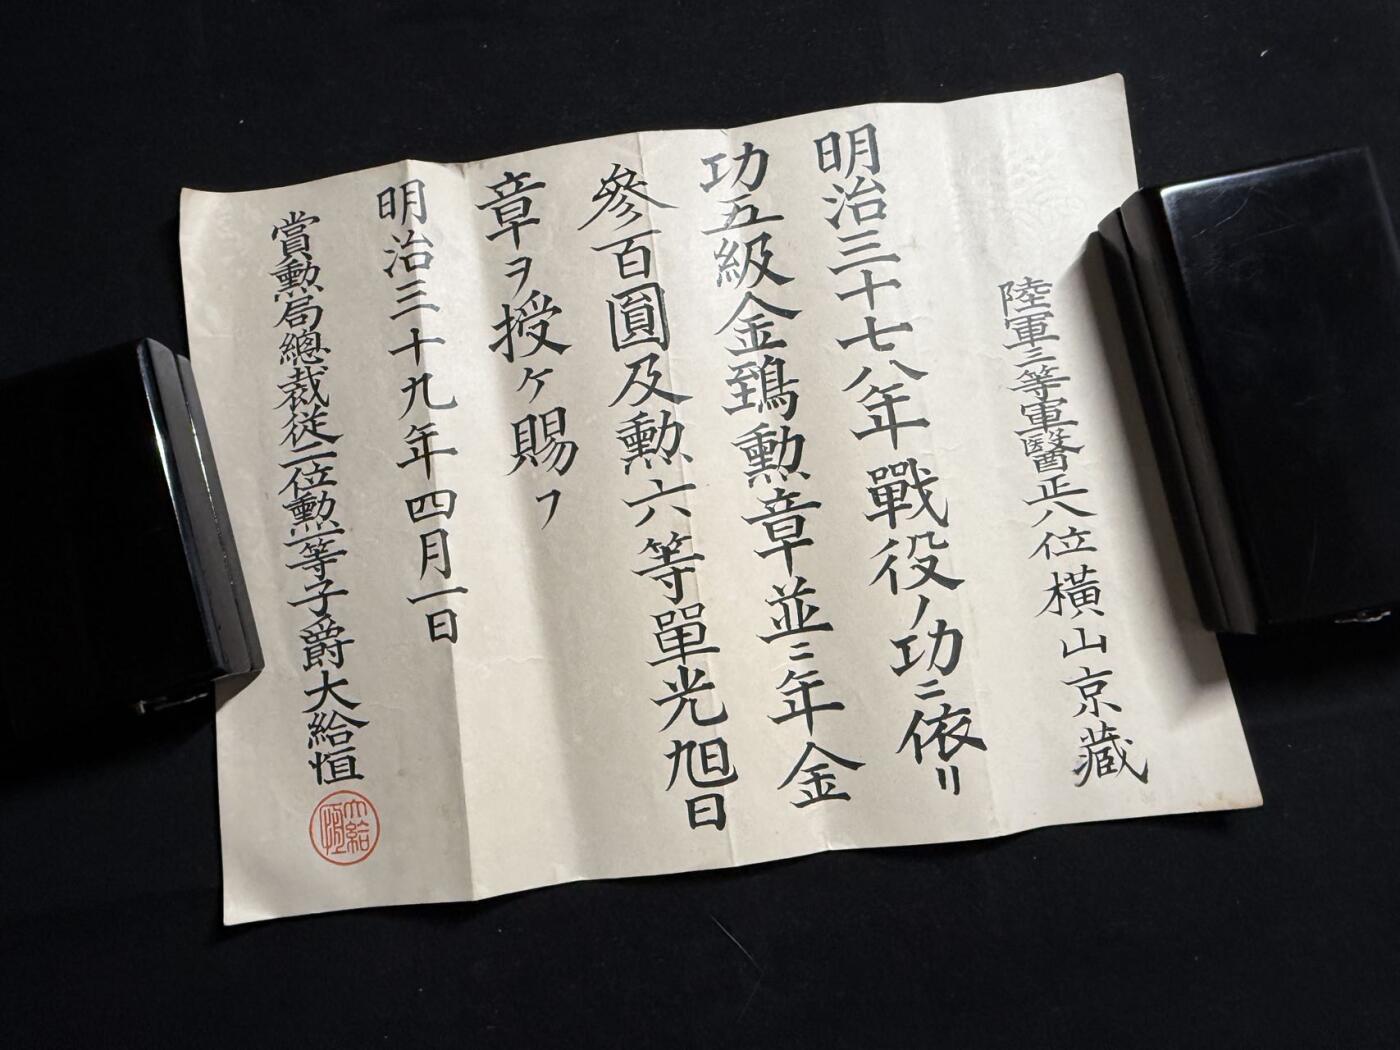 陸軍三等軍醫正八位橫山京藏
明治三十七八年戰役ノ功ニ依リ
功五級金鵄勲章並ニ年金
參百圓及勲六等單光旭日
章ヲ授ケ賜フ
明治三十九年四月一日
賞勲局總裁從二位勲一等子爵大給恒
大給恒